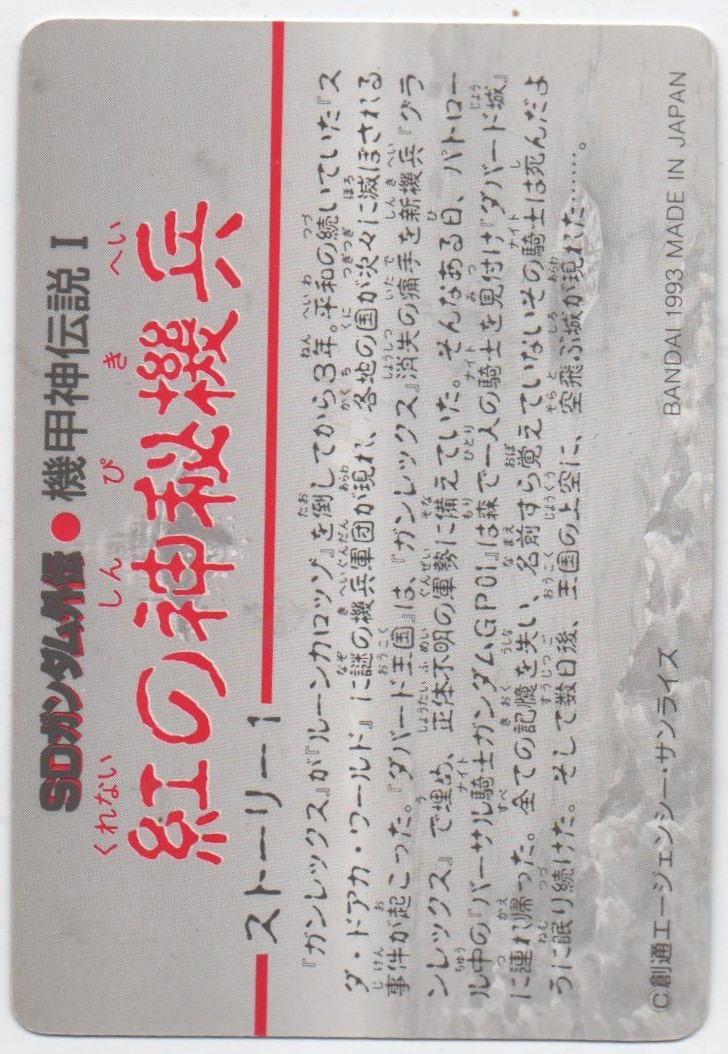 SDガンダム外伝●機甲神伝説 I
くれない しんぴきへい
紅の神秘機兵
ストーリー1
『ガンレックス』が『ルーンカロッゾ』を倒してから3年。平和の続いていた『ス
ダ・ドアカ・ワールド』に謎の機兵軍団が現れ、各地の国が次々に滅ぼされる
事件が起こった。『ダバード王国』は、『ガンレックス』消失の痛手を新機兵『グラ
ンレックス』で埋め、正体不明の軍勢に備えていた。そんなある日、パトロー
ル中の『バーサル騎士ガンダムGP01』は森で一人の騎士を見付け『ダバード城』
に連れ帰った。全ての記憶を失い、名前すら覚えていないその騎士は死んだよ
うに眠り続けた。そして数日後、王国の上空に、空飛ぶ城が現れた……。
©創通エージェンシー・サンライズ
BANDAI 1993 MADE IN JAPAN